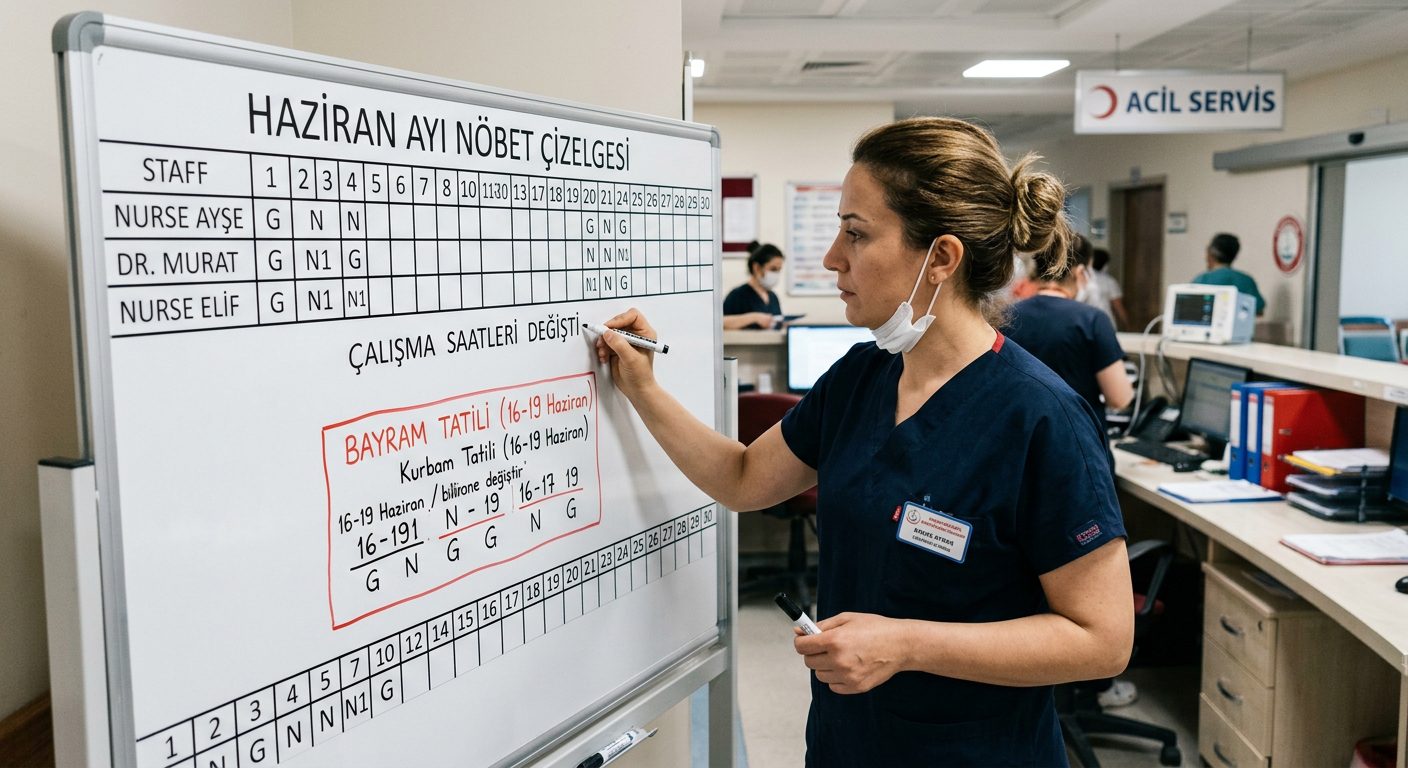 HAZİRAN AYI NÖBET ÇİZELGESİ
STAFF 1 2 3 4 5 6 7 8 10 1130 13 17 18 19 20 21 24 25 26 27 28 29 30
NURSE AYŞE G N N G N G
DR. MURAT G N1 G N N N1
NURSE ELİF G N1 N1 N1 N G
ÇALIŞMA SAATLERİ DEĞIŞTİ
BAYRAM TATİLİ (16-19 Haziran)
Kurbam Tatili (16-19 Haziran)
16-19 Haziran / değiştir
16-191 N - 19 16-17 19
G N G G N G
1 2 3 4 5 7 10 12 14 15 16 17 18 19 20 21 22 23 24 25 26 27 28 29 30
N G N N N1 G
ACİL SERVİS